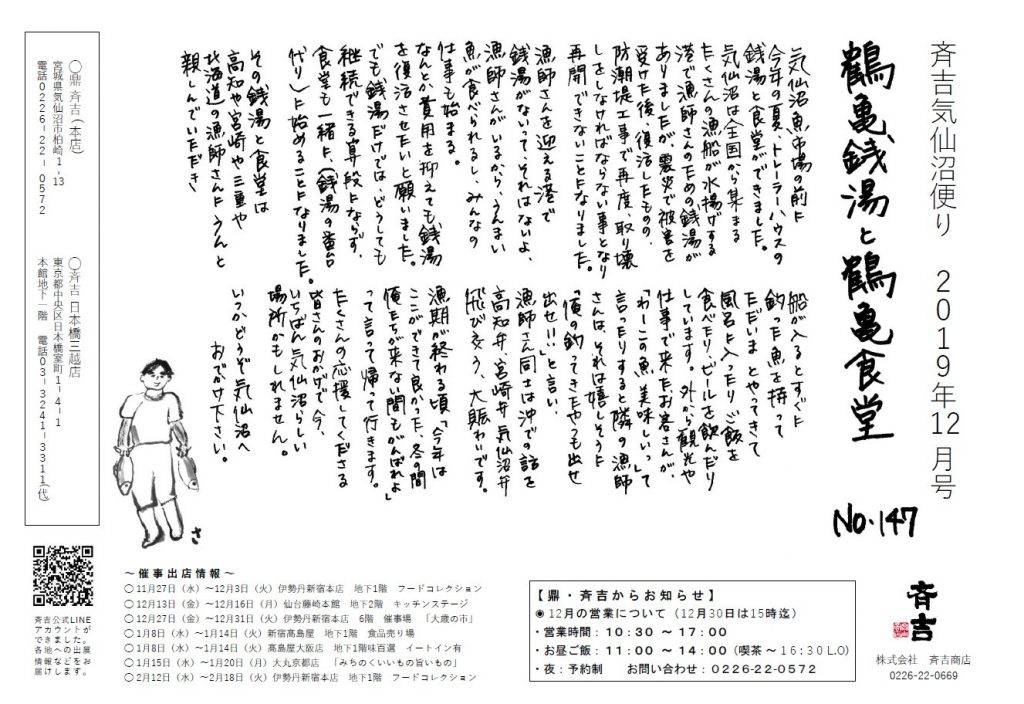 斉吉気仙沼便り　2019年12月号
鶴亀、銭湯と鶴亀食堂
No.147
気仙沼魚市場の前に
今年の夏、トレーラーハウスの
銭湯と食堂ができました。
気仙沼は全国から集まる
たくさんの漁船が水揚げする
港で漁師さんのための銭湯が
ありましたが、震災で被害を
受けた後、復活したものの、
防潮堤工事で再度、取り壊
しをしなければならない事となり
再開できないことになりました。
漁師さんを迎える港で
銭湯がないって、それはないよ、
漁師さんがいるから、うんまい
魚が食べられるし、みんなの
仕事も始まる。
なんとか費用を抑えても銭湯
を復活させたいと願いました。
でも銭湯だけでは、どうしても
継続できる算段にならず、
食堂も一緒に、(銭湯の番台
代り)に始めることになりました。
その銭湯と食堂は
高知や宮崎や三重や
北海道の漁師さんにうんと
親しんでいただき
船が入るとすぐに
釣った魚を持って
ただいまとやってきて
風呂に入ったり、ご飯を
食べたり、ビールを飲んだり
しています。外から観光や
仕事で来たお客さんが、
「わーこの魚、美味しいっ」って
言ったりすると隣の漁師
さんは、それは嬉しそうに
「俺の釣ってきたやつも出せ
出せ!!」と言い、
漁師さん同士は沖での話を
高知弁、宮崎弁、気仙沼弁
飛び交う、大賑わいです。
漁期が終わる頃「今年は
ここができて良かった、冬の間
俺たちが来ない間もがんばれよ」
って言って帰って行きます。
たくさんの応援してくださる
皆さんのおかげで今、
いちばん気仙沼らしい
場所かもしれません。
いつかどうぞ気仙沼へ
おでかけ下さい。
さ
○鼎 斉吉(本店)
宮城県気仙沼市柏崎1-13
電話0226-22-0572
○斉吉 日本橋三越店
東京都中央区日本橋室町1-4-1
本館地下一階　電話03-3241-3311(代)
斉吉公式LINE
アカウントが
できました。
各地への出展
情報などをお
届けします。
～催事出店情報～
○11月27日（水）～12月3日（火）伊勢丹新宿本店　地下1階　フードコレクション
○12月13日（金）～12月16日（月）仙台藤崎本館　地下2階　キッチンステージ
○12月27日（金）～12月31日（火）伊勢丹新宿本店　6階　催事場　「大歳の市」
○1月8日（水）～1月14日（火）新宿髙島屋　地下1階　食品売り場
○1月8日（水）～1月14日（火）髙島屋大阪店　地下1階味百選　イートイン有
○1月15日（水）～1月20日（月）大丸京都店　「みちのくいいもの旨いもの」
○2月12日（水）～2月18日（火）伊勢丹新宿本店　地下1階　フードコレクション
【鼎・斉吉からお知らせ】
◉12月の営業について（12月30日は15時迄）
・営業時間：10：30 ～ 17：00
・お昼ご飯：11：00 ～ 14：00（喫茶 ～ 16：30 L.O）
・夜：予約制　　お問い合わせ：0226-22-0572
斉吉
株式会社　斉吉商店
0226-22-0669